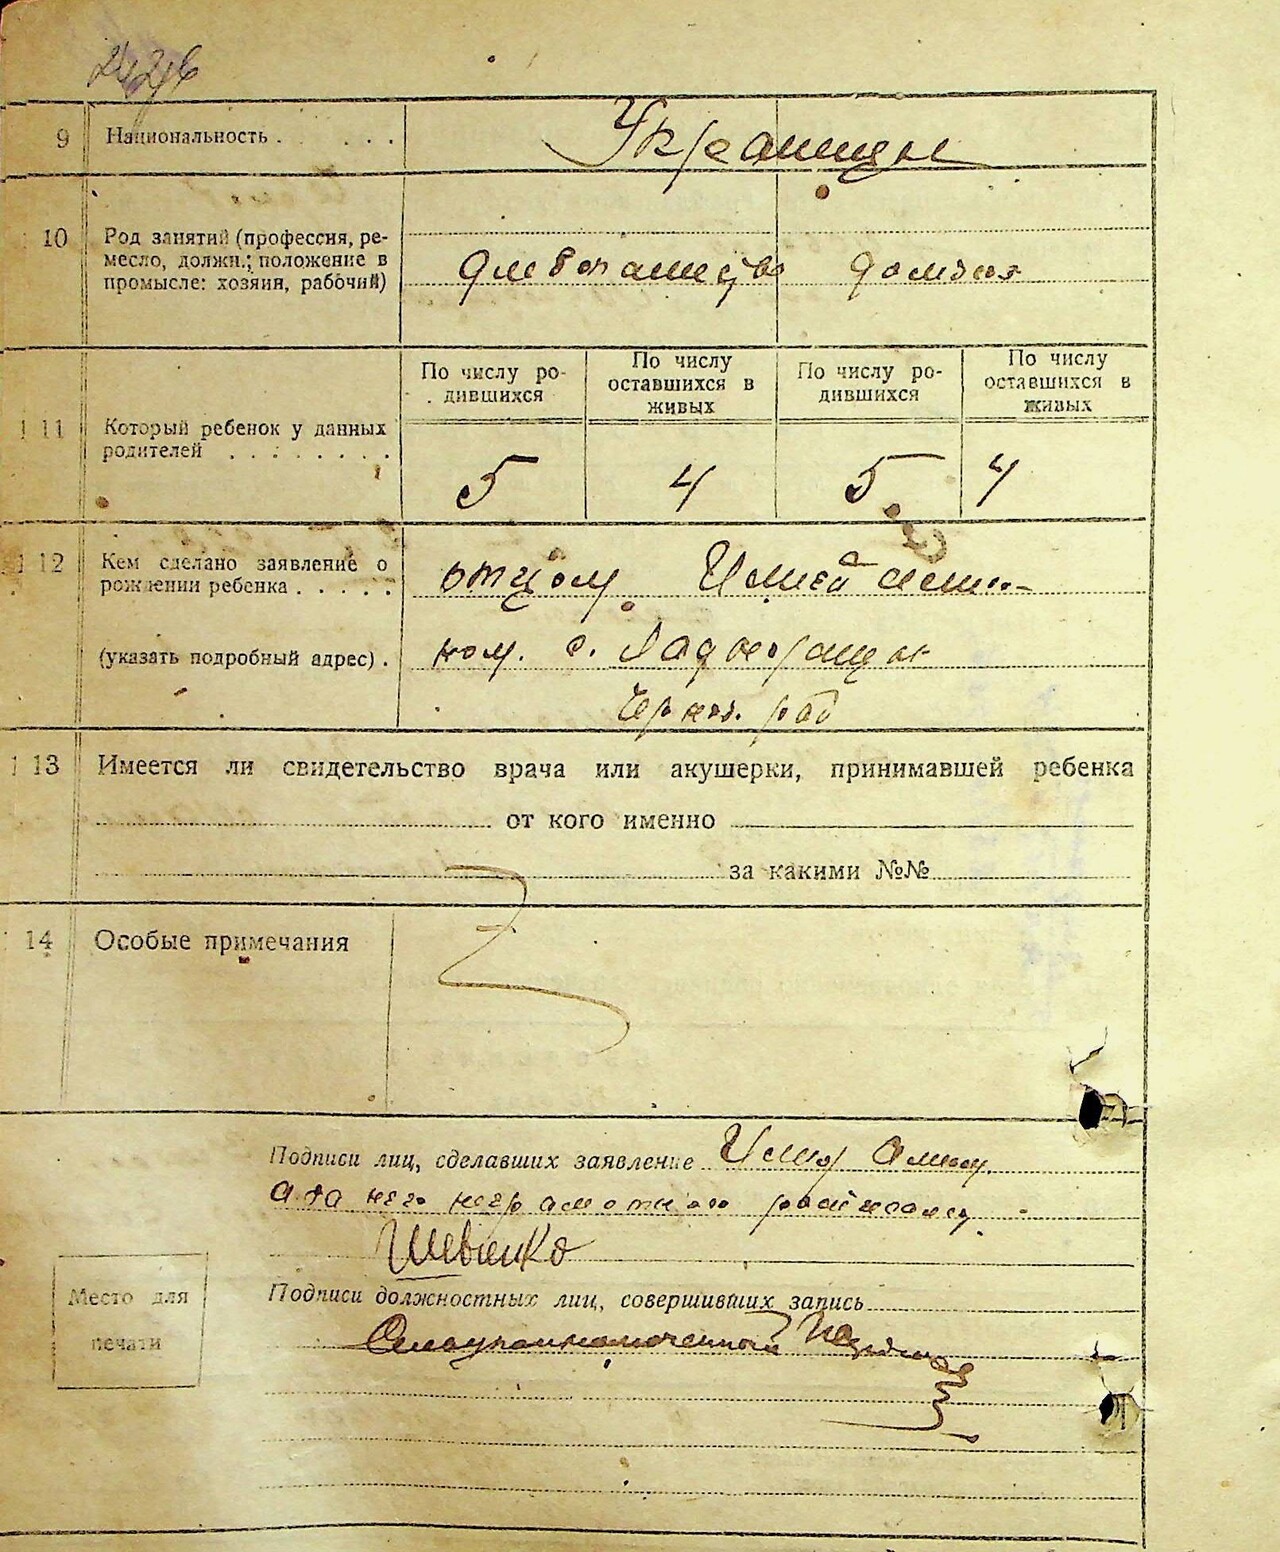 9 Национальность . . . . . Украинцы
10 Род занятий (профессия, ре-
месло, должн.; положение в
промысле: хозяин, рабочий)
хлебопашество домхоз
По числу ро-
дившихся
По числу
оставшихся в
живых
По числу ро-
дившихся
По числу
оставшихся в
живых
11 Который ребенок у данных
родителей . . . . . . . .
5 4 5 4
12 Кем сделано заявление о
рождении ребенка . . . . .
отцом
(указать подробный адрес) .
ком. с.
рад
13 Имеется ли свидетельство врача или акушерки, принимавшей ребенка
от кого именно
за какими №№
14 Особые примечания
Подписи лиц, сделавших заявление
а за него неграмотного
Шевченко
Место для
печати
Подписи должностных лиц, совершивших запись